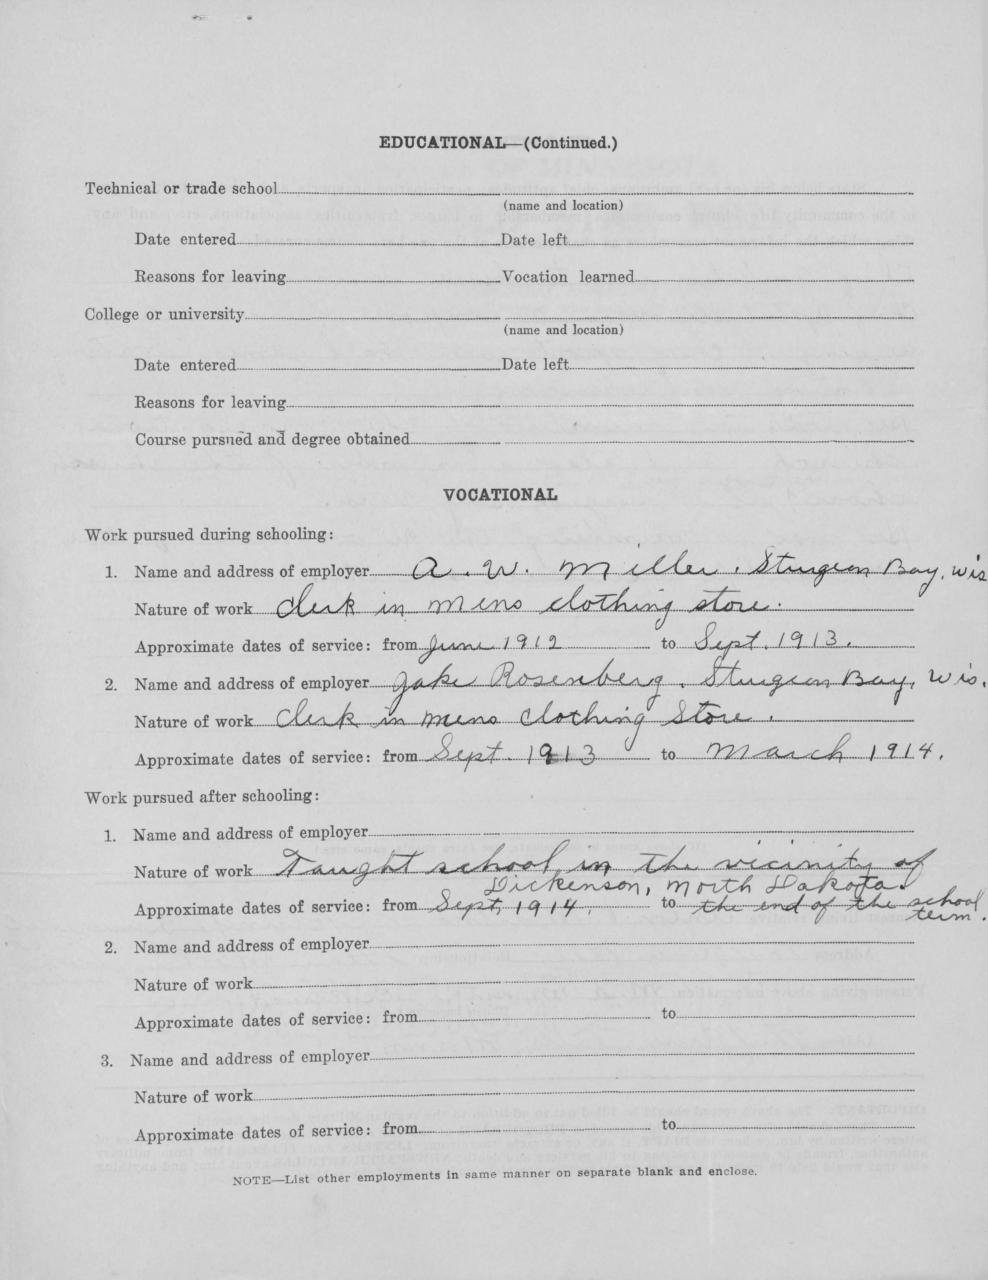 EDUCATIONAL—(Continued.)
Technical or trade school
(name and location)
Date entered Date left
Reasons for leaving Vocation learned
College or university
(name and location)
Date entered Date left
Reasons for leaving
Course pursued and degree obtained
VOCATIONAL
Work pursued during schooling:
1. Name and address of employer A. W. Miller. Sturgeon Bay, Wis
Nature of work Clerk in mens clothing store.
Approximate dates of service: from June 1912 to Sept. 1913.
2. Name and address of employer Jake Rosenberg. Sturgeon Bay, Wis.
Nature of work Clerk in mens Clothing Store.
Approximate dates of service: from Sept. 1913 to March 1914.
Work pursued after schooling:
1. Name and address of employer
Nature of work Taught school in the vicinity of
Dickenson, North Dakota.
Approximate dates of service: from Sept, 1914. to the end of the school
term.
2. Name and address of employer
Nature of work
Approximate dates of service: from to
3. Name and address of employer
Nature of work
Approximate dates of service: from to
NOTE—List other employments in same manner on separate blank and enclose.